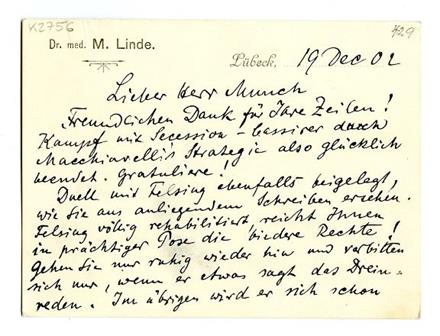 K2756
429
Dr. med. M. Linde.
Lübeck, 19 Dec 02
Lieber Herr Munch
Freundlichen Dank für Ihre Zeilen!
Kampf mit Secession – Cassirer durch
Macchiavelli's Strategie also glücklich
beendet. Gratuliere!
Duell mit Felsing ebenfalls beigelegt,
wie Sie aus anliegendem Schreiben ersehen.
Felsing völlig rehabilitirt reicht Ihnen
in prächtiger Pose die biedere Rechte!
Gehen Sie nur ruhig wieder hin und verbitten
sich nur, wenn er etwas sagt das Drein-
reden. Im übrigen wird er sich schon